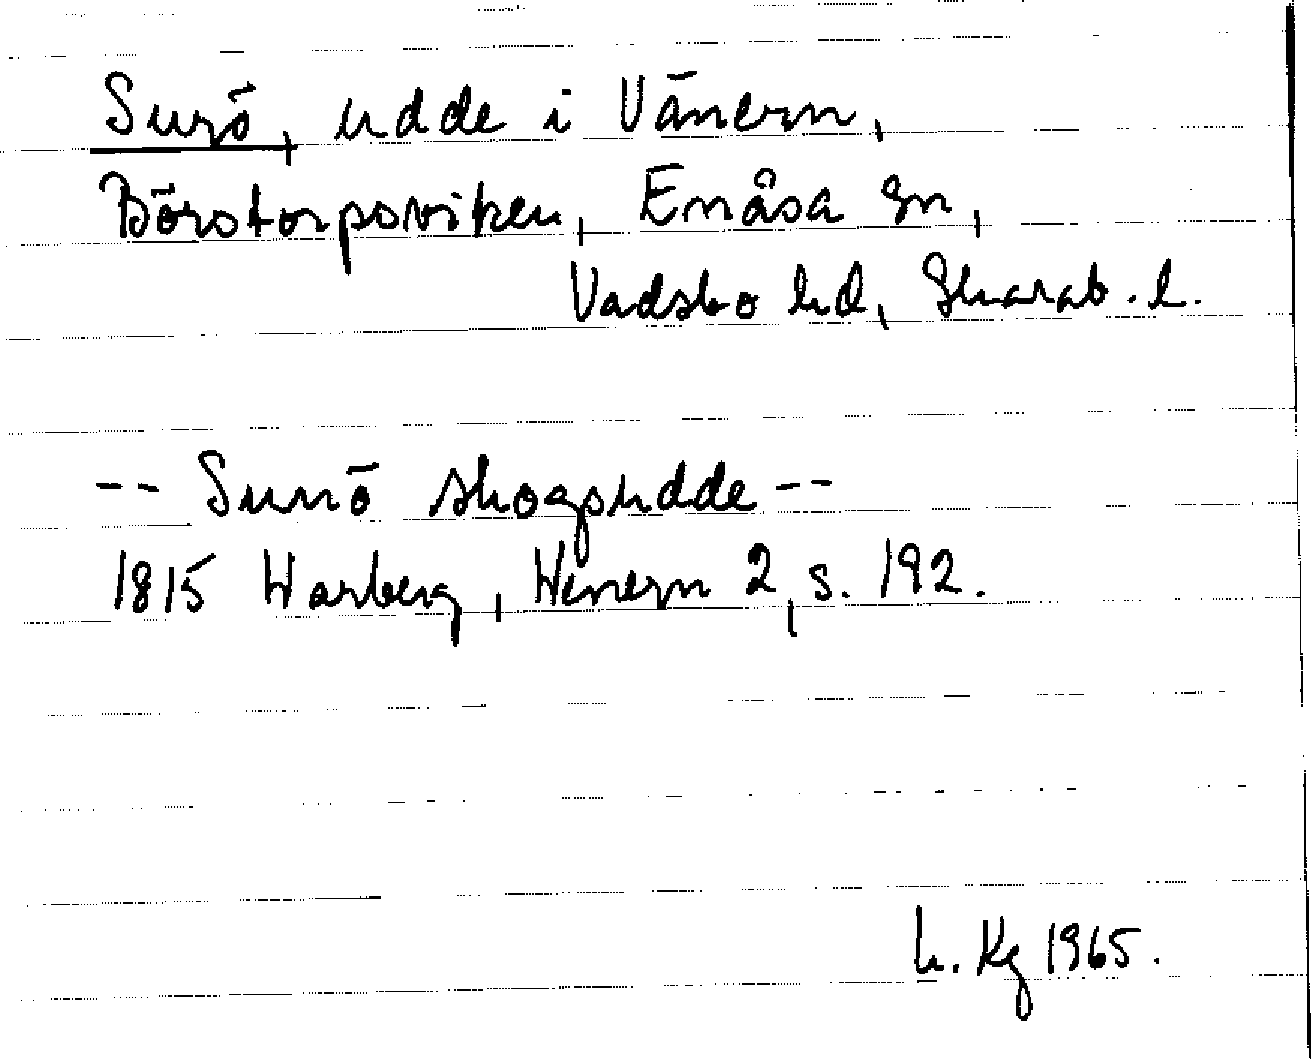 Surö, udde i Vänern,
Börstorpsviken, Enåsa sn,
Vadsbo hd, Skarab. l.
-- Surrö skogsudde --
1815 Warberg, Wenern 2, s. 192.
Kg 1965.